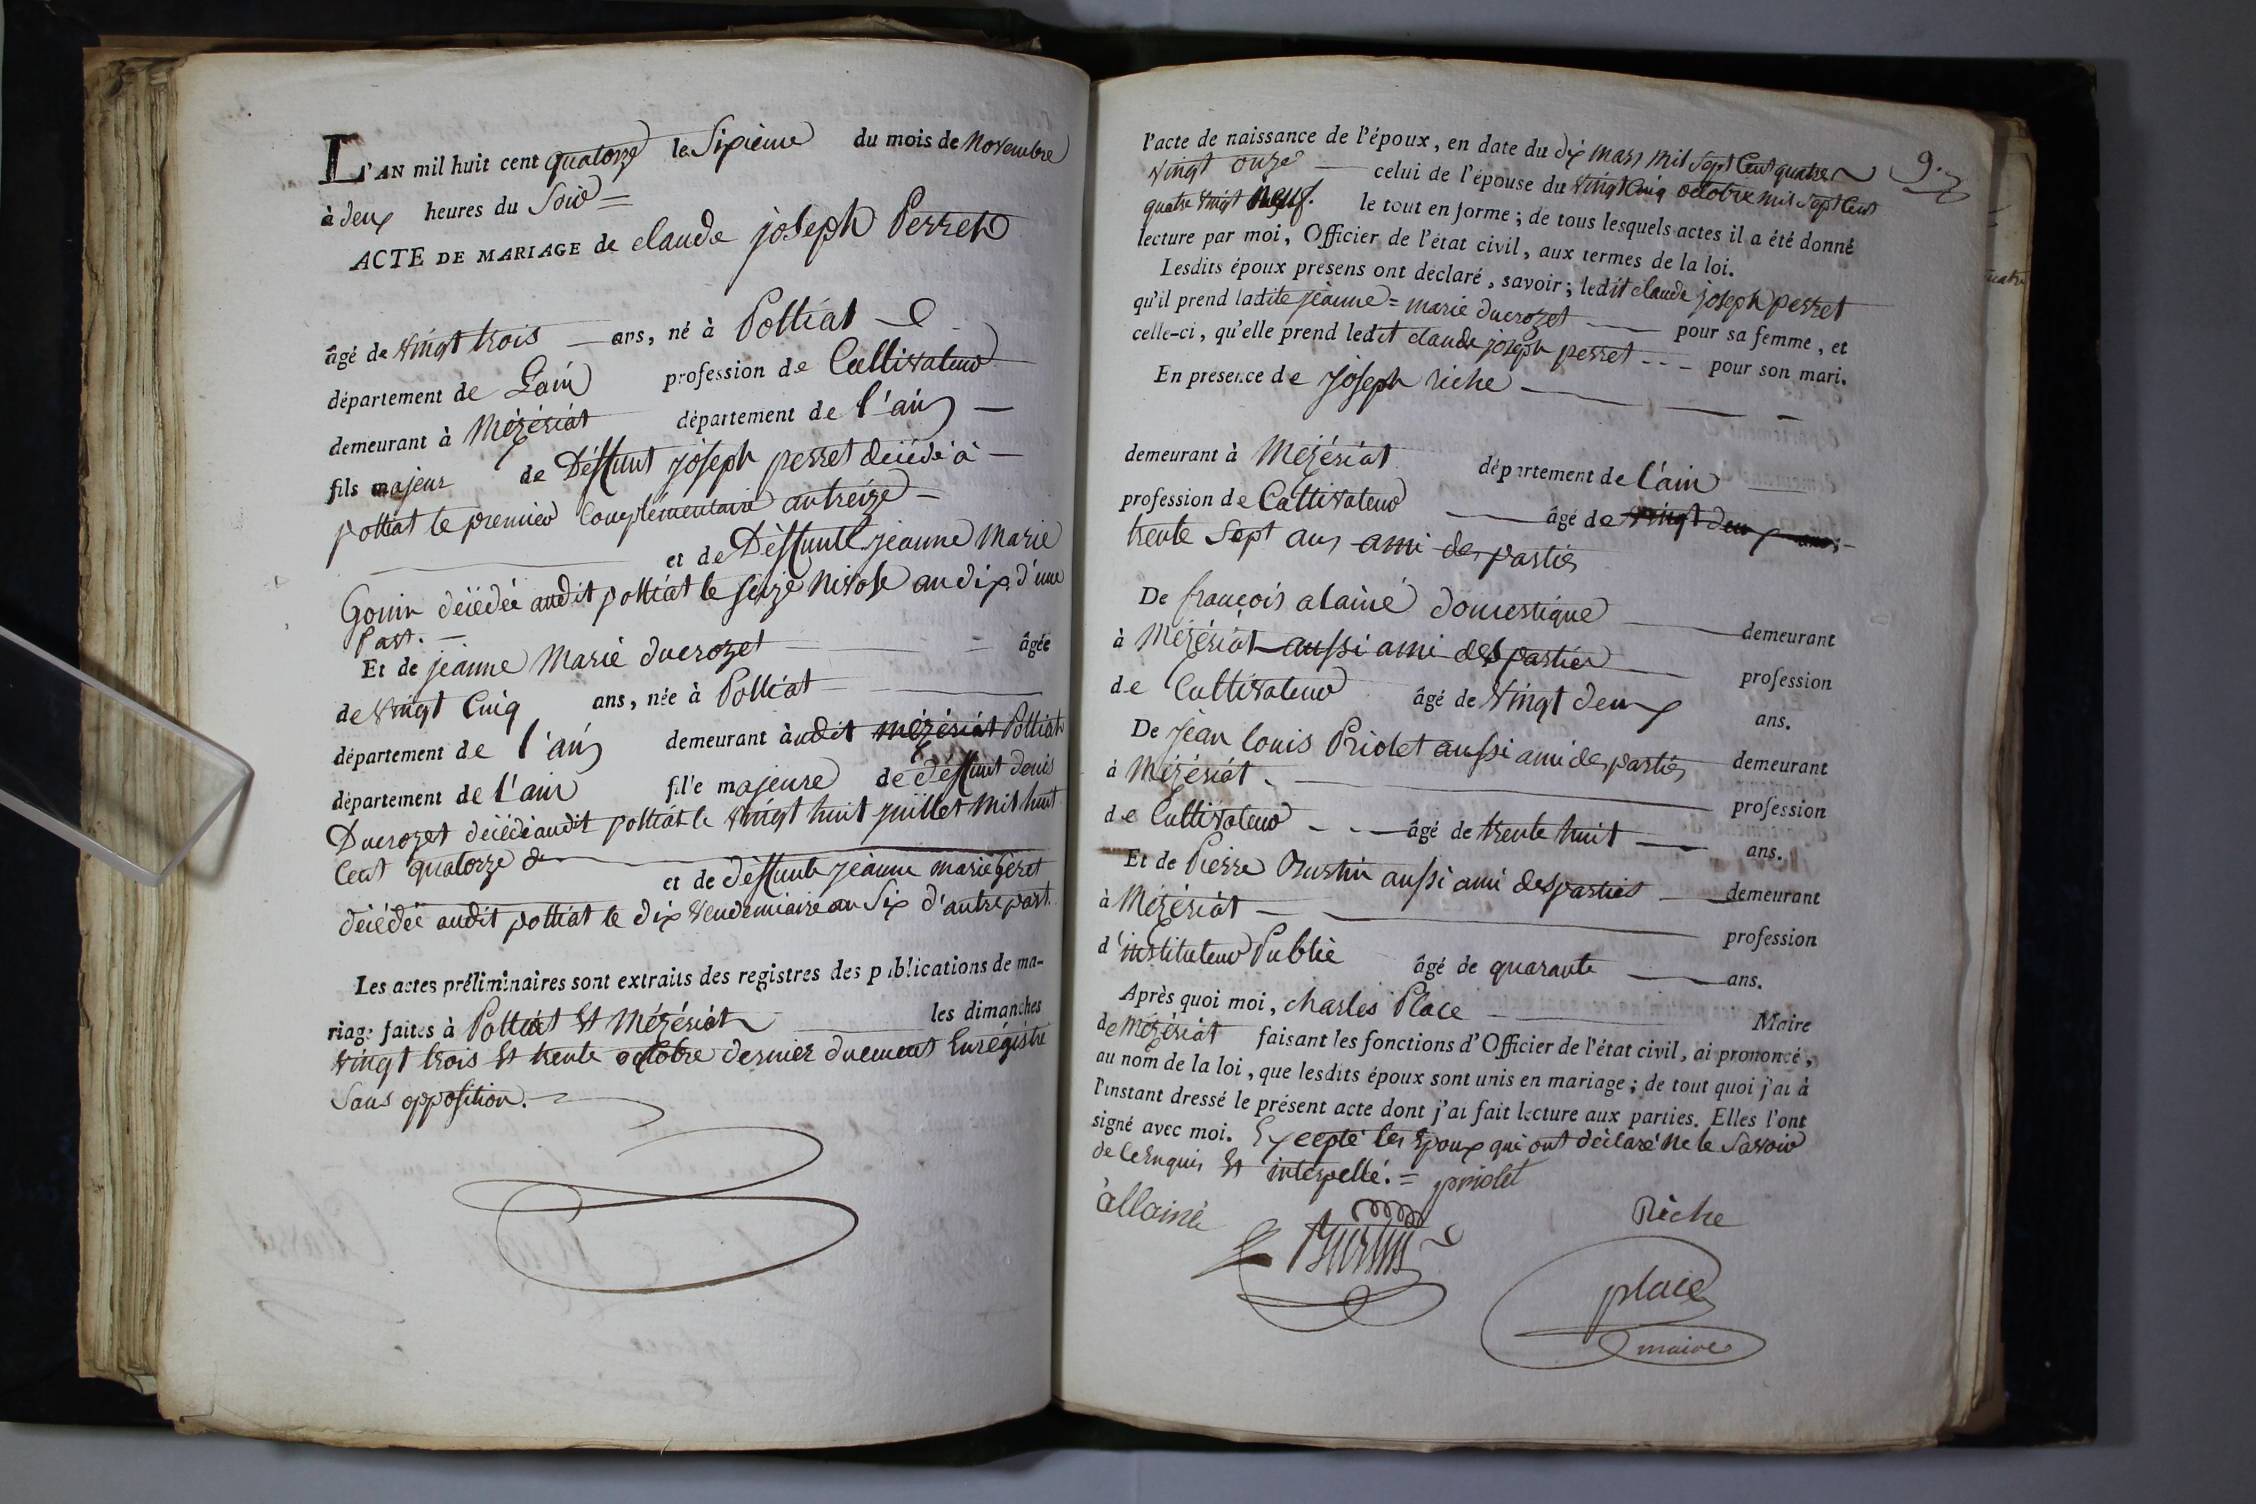 L'AN mil huit cent quatorze le Sixième du mois de Novembre
à deux heures du Soir =
ACTE DE MARIAGE de claude joseph Perret
âgé de vingt trois ans, né à Polliat
département de Lain profession de Cultivateur
demeurant à Mézériat département de l'ain
fils majeur de Deffunt joseph perret décédé à
polliat le premier Complémentaire an treize =
et de Deffunte jeanne Marie
Gonin décédée audit polliat le seize Nivose an dix d'une
part.
Et de jeanne Marie ducrozet âgée
de vingt Cinq ans, née à Polliat
département de l'ain demeurant audit mézériat Polliat
département de l'ain fille majeure de deffunt denis
Ducrozet décédé audit polliat le vingt huit juillet mil huit
Cent quatorze
et de deffunte jeanne marie
décédée audit polliat le dix vendemiaire an Six d'autre part.
Les actes préliminaires sont extraits des registres des publications de ma-
riage faites à Polliat Et Mézériat les dimanches
vingt trois Et trente octobre dernier duement Enrégistré
Sans opposition.
l'acte de naissance de l'époux, en date du dix mars mil sept Cent quatre 9.
vingt onze celui de l'épouse du vingt Cinq octobre mil sept Cent
quatre vingt neuf. le tout en forme ; de tous lesquels actes il a été donné
lecture par moi, Officier de l'état civil, aux termes de la loi.
Lesdits époux présens ont déclaré, savoir ; ledit claude joseph perret
qu'il prend ladite jeanne = marie ducrozet pour sa femme, et
celle-ci, qu'elle prend ledit claude joseph perret - - - pour son mari.
En présence de joseph riche
demeurant à Mézériat département de l'ain
profession de Cultivateur âgé de vingt deux ans
trente Sept ans ami des parties
De françois alainé domestique demeurant
à Mézériat aussi ami des parties profession
de Cultivateur âgé de vingt deux ans.
De jean louis Priolet aussi ami des parties demeurant
à Mézériat profession
de Cultivateur âgé de trente huit ans.
Et de Pierre Burtin aussi ami des parties demeurant
à Mézériat profession
d'instituteur Public âgé de quarante ans.
Après quoi moi, charles Place Maire
de Mézériat faisant les fonctions d'Officier de l'état civil, ai prononcé,
au nom de la loi, que lesdits époux sont unis en mariage ; de tout quoi j'ai à
l'instant dressé le présent acte dont j'ai fait lecture aux parties. Elles l'ont
signé avec moi. Excepté les Epoux qui ont déclaré ne le Savoir
de ce Enquis Et interpellé. = priolet
allainé Riche
Burtin
place
maire